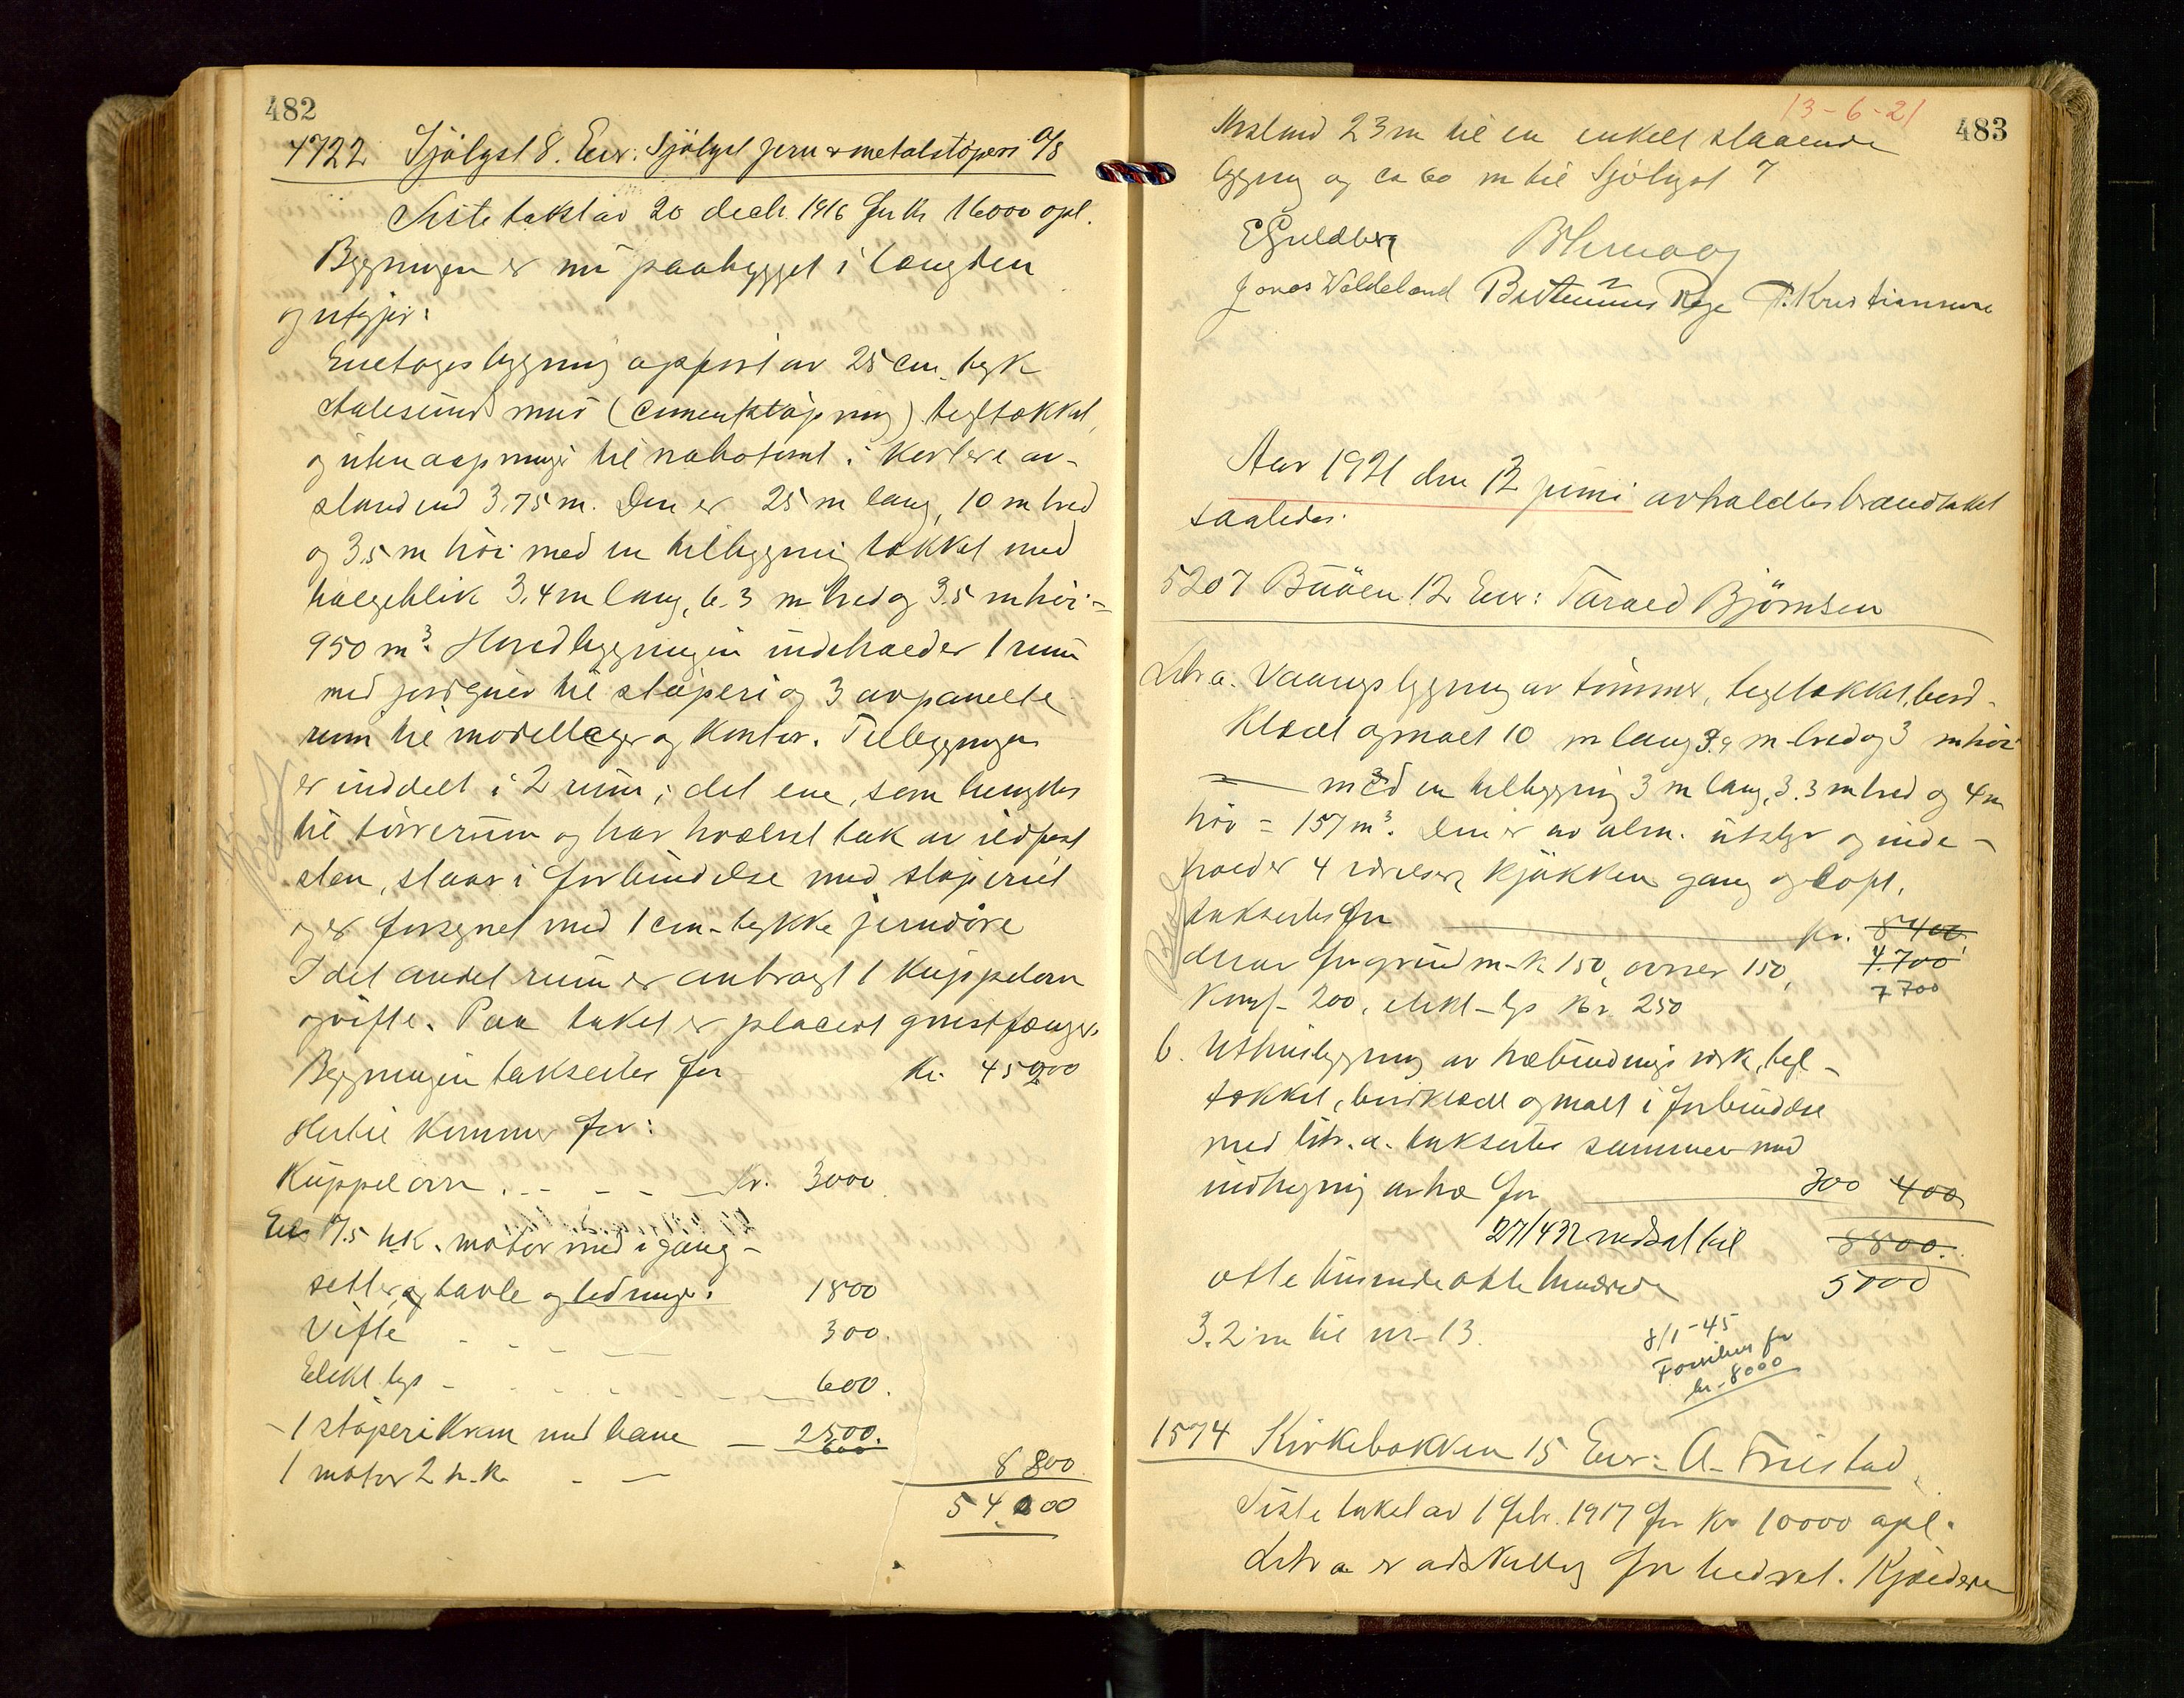 482
4722 Sjölyst 8. Eier: Sjölyst jern & metalstöperi A/S
Siste takst av 20 decb. 1916 for kr 16000 opl.
Bygningen er nu paabygget i længden
og utgjör:
Enetages bygning opført av 25 cm. tyk
Aalesund mur (cementstöpning) tegltækket,
og uten aapninger til nabotomt i kortere av-
stand end 3.75 m. Den er 25 m lang, 10 m bred
og 3.5 m höi med en tilbygning tækket med
bölgeblik 3.4 m lang, 6.3 m bred og 3.5 m höi =
950 m³. Hovedbygningen indeholder 1 rum
med jordgulv til stöperi og 3 avpanelte
rum til modellager og kontor. Tilbygningen
er inddelt i 2 rum; det ene, som benyttes
til törrerum og har hvælvet tak av ildfast
sten, staar i forbindelse med stöperiet
og er forsynet med 1 cm-tykke jerndöre
I det andet rum er anbragt 1 Kuppelovn
og vifte. Paa taket er placert gnistfanger.
Bygningen takseres for kr. 45000
Hertil kommer for:
Kuppelovn . - - - - Kr. 3000
7.5 h.k. motor med igang-
setter, tavle og ledninger. 1800
Vifte - - - - 300.
Elekt. lys - - - - 600.
- 1 stöperikran med bane - 2500.
600
1 motor 2 h.k. - -
8 800
54 000
13-6-21
483
Avstand 23 m til en enkelt staaende
bygning og ca 60 m til Sjölyst 7
E Guldberg
Jonas Waldeland Bertinius Rege T. Kristiansen
Aar 1921 den 13 juni avholdtes brandtakst
saaledes:
5207 Buöen 12 Eier: Tarald Björnsen
Litr a. Vaaningsbygning av tömmer, tegltækket, bord-
klædt og malt 10 m lang 3.9 m bred og 3 m höi
med en tilbygning 3 m lang, 3.3 m bred og 4 m
höi = 157 m³. Den er av alm. utstyr og inde-
holder 4 værelser, kjökken gang og loft.
takseres for kr. 8400
derav for grundm- k. 150, ovner 150, 4.700
komf- 200, elekt- lys kr 250 7700
b. Uthusbygning av træbindingsverk, tegl-
tækket, bordklædt og malt i forbindelse
med litr. a. takseres sammen med
indhegning av træ for 300 400
27/4 32 nedsat til 8800.
otte tusinde otte hundrede 5000
3.2 m til nr. 13.
8/1-45
for
kr. 8000
1574 Kirkebakken 15 Eier: A. Friestad
Siste takst av 1 febr. 1917 for kr 10000 opl.
Litr a er adskillig forbedret. Kjælderen